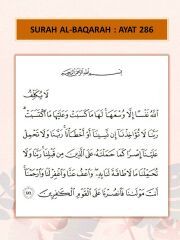 SURAH AL-BAQARAH : AYAT 286
بِسْمِ اللَّهِ الرَّحْمَٰنِ الرَّحِيمِ
لَا يُكَلِّفُ
اللَّهُ نَفْسًا إِلَّا وُسْعَهَا لَهَا مَا كَسَبَتْ وَعَلَيْهَا مَا اكْتَسَبَتْ
رَبَّنَا لَا تُؤَاخِذْنَا إِن نَّسِينَا أَوْ أَخْطَأْنَا رَبَّنَا وَلَا تَحْمِلْ
عَلَيْنَا إِصْرًا كَمَا حَمَلْتَهُ عَلَى الَّذِينَ مِن قَبْلِنَا رَبَّنَا وَلَا
تُحَمِّلْنَا مَا لَا طَاقَةَ لَنَا بِهِ وَاعْفُ عَنَّا وَاغْفِرْ لَنَا وَارْحَمْنَا
أَنتَ مَوْلَانَا فَانصُرْنَا عَلَى الْقَوْمِ الْكَافِرِينَ ٢٨٦